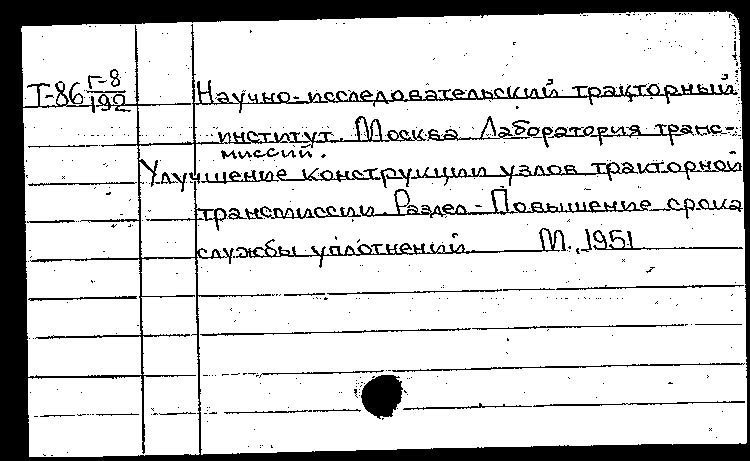 Т-86 Г-8/192
Научно-исследовательский тракторный
институт. Москва Лаборатория транс-
миссий.
Улучшение конструкции узлов тракторной
трансмиссии. Раздел - Повышение срока
службы уплотнений. М., 1951